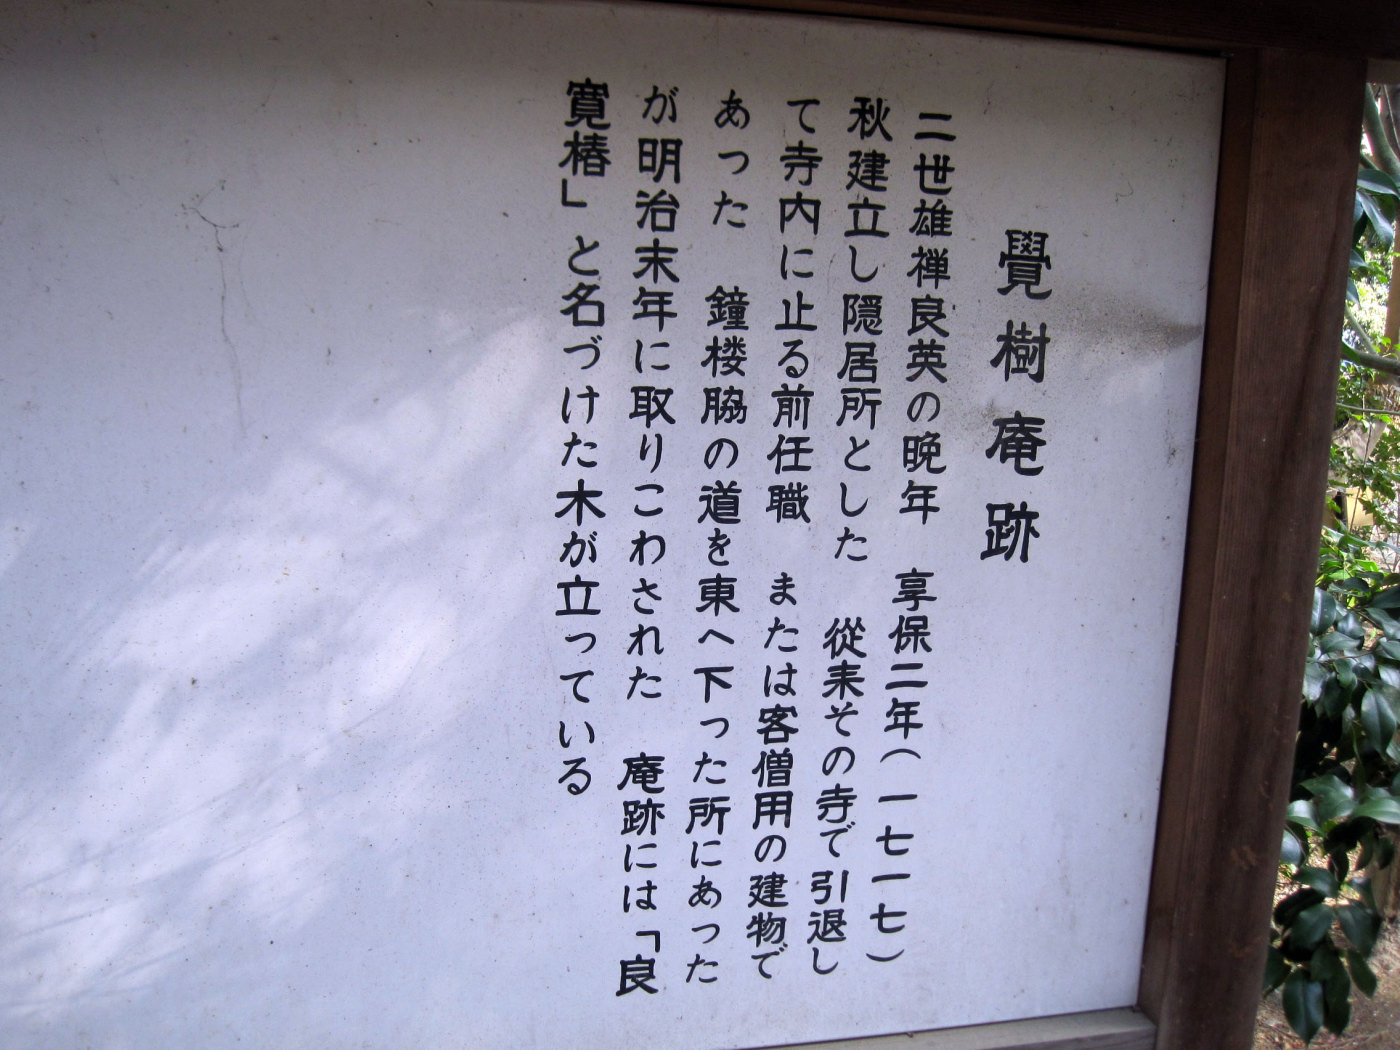 覺樹庵跡
二世雄禅良英の晩年　享保二年(一七一七)
秋建立し隠居所とした　從来その寺で引退し
て寺内に止る前任職　または客僧用の建物で
あった　鐘楼脇の道を東へ下った所にあった
が明治末年に取りこわされた　庵跡には「良
寛椿」と名づけた木が立っている